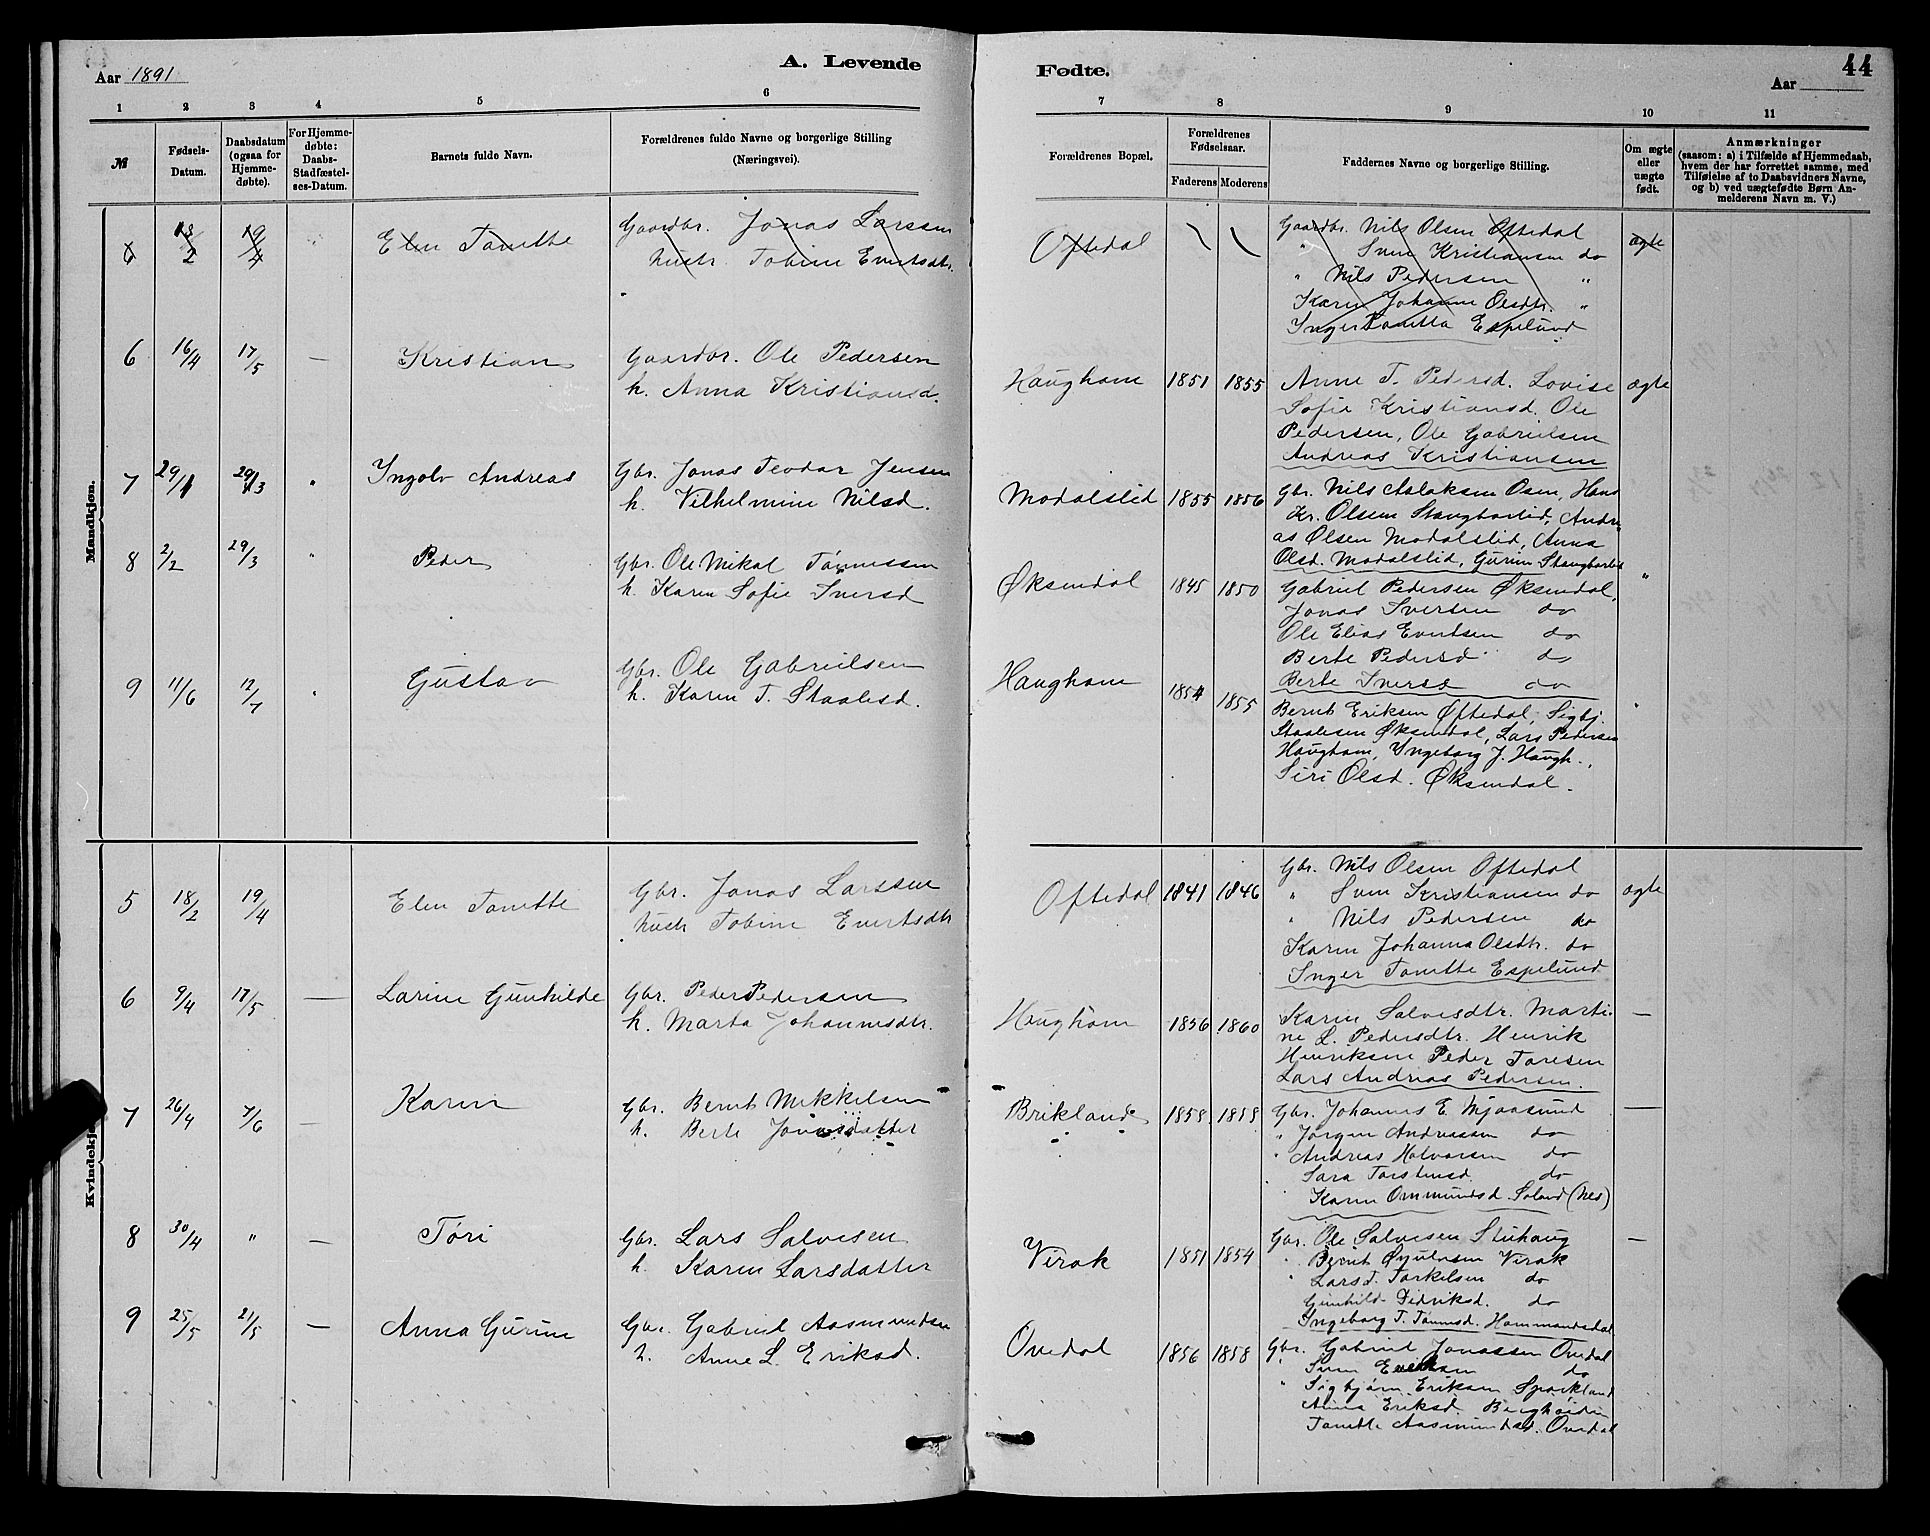 Aar 1891
A. Levende
Fødte.
44
Aar
1 2 3 4 5 6 7 8 9 10 11
№
Fødsels-
Datum.
Daabsdatum
(ogsaa for
Hjemme-
døbte).
For Hjemme-
døbte:
Daabs-
Stadfæstel-
ses-Datum.
Barnets fulde Navn.
Forældrenes fulde Navne og borgerlige Stilling
(Næringsvei).
Forældrenes Bopæl.
Forældrenes
Fødselsaar.
Faderens Moderens
Faddernes Navne og borgerlige Stilling.
Om ægte
eller
uægte
født.
Anmærkninger
(saasom: a) i Tilfælde af Hjemmedaab,
hvem der har forrettet samme, med
Tilføielse af to Daabsvidners Navne,
og b) ved uægtefødte Børn An-
melderens Navn m. V.)
Mandkjøn.
6 18/2 19/4 " Elen Tonette
Gaardbr. Jonas Larssen
hustr. Tobine Evertsdtr.
Oftedal
Gaardbr. Nils Olsen Oftedal
" Sven Kristiansen do
" Nils Pedersen "
Karen Johanne Olsdtr. "
Inger Tonetta Espelund
ægte
6 16/4 17/5 — Kristian
Gaardbr. Ole Pedersen
h. Anna Kristiansd.
Haughom 1851 1855
Anne T. Pedersd. Lovise
Sofie Kristiansd. Ole
Pedersen, Ole Gabrielsen
Andreas Kristiansen
ægte
7 29/1 29/3 " Ingolv Andreas
Gbr. Jonas Teodor Jensen
h. Vilhelmine Nilsd.
Modalslid 1855 1856
Gbr. Nils Aslaksen Osen, Hans
Kr. Olsen Stangborlid, Andre
as Olsen Modalslid, Anna
Olsd. Modalslid, Gurine Stangborlid
8 2/2 29/3 " Peder
Gbr. Ole Mikal Tønnessen
h. Karen Sofie Iversd
Øksendal 1845 1850 "
Gabriel Pedersen Øksendal,
Jonas Iversen do
Ole Elias Evertsen do
Berte Pedersd do
Berte Iversd do
9 11/6 12/7 " Gustav
Gbr. Ole Gabrielsen
h. Karen T. Staalesd.
Haughom 1854 1855 "
Bernt Eriksen Oftedal, Sigbj.
Staalesen Øksendal, Lars Pedersen
Haughom, Ingeborg J. Haugh.,
Siri Olsd. Øksendal.
Kvindekj
5 18/2 19/4 Elen Tonette
Gbr. Jonas Larssen
hustr Tobine Evertsdtr
Oftedal 1841 1846
Gbr. Nils Olsen Oftedal
" Sven Kristiansen do
" Nils Pedersen do
Karen Johanna Olsdtr. do
Inger Tonette Espelund
ægte
6 9/4 17/5 — Larine Gunhilde
Gbr. Peder Pedersen
h. Marta Johannesdtr.
Haughom 1856 1860 —
Karen Salvesdtr. Marti-
ne L. Pedersdtr. Henrik
Henriksen Peder Toresen
Lars Andreas Pedersen.
7 26/4 7/6 — Karen
Gbr. Bernt Mikkelsen
h. Berte Jonasdatter
Brikland 1858 1858 —
Gbr. Johannes E. Mjaasund
" Jørgen Andreassen do
" Andreas Halvorsen do
Sara Torstensd do
Karen Ommundsd. Soland (Nes)
8 30/4 " — Tøri
Gbr. Lars Salvesen
h. Karen Larsdatter
Virak 1851 1854 —
Gbr. Ole Salvesen Stuhaug
" Bernt Øyulvsen Virak
" Lars T. Torkelsen do
Gunhild Didriksd. do
Ingeborg T. Tønnesd. Hommandsdal
9 25/5 21/5 — Anna Gurine
Gbr. Gabriel Aasmundsen
h. Anne L. Eriksd.
Ovedal 1856 1858
Gbr. Gabriel Jonassen Ovedal
" Sven do
" Sigbjørn Eriksen Sparkland
Anna Eriksd.
Tonette Aasmundsd. Ovedal